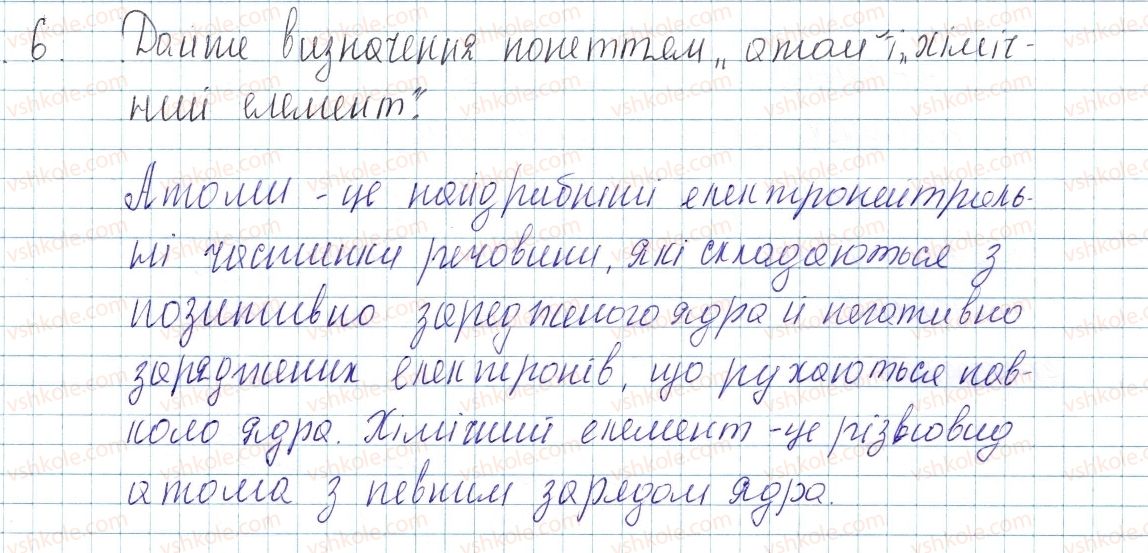 6. Дайте визначення понеттям „атом" і „хіміч-
ний елемент".
Атоми - це найдрібніші електронейтраль-
ні частинки речовини, які складаються з
позитивно зарядженого ядра й негативно
заряджених електронів, що рухаються нав-
коло ядра. Хімічний елемент - це різновид
атома з певним зарядом ядра.